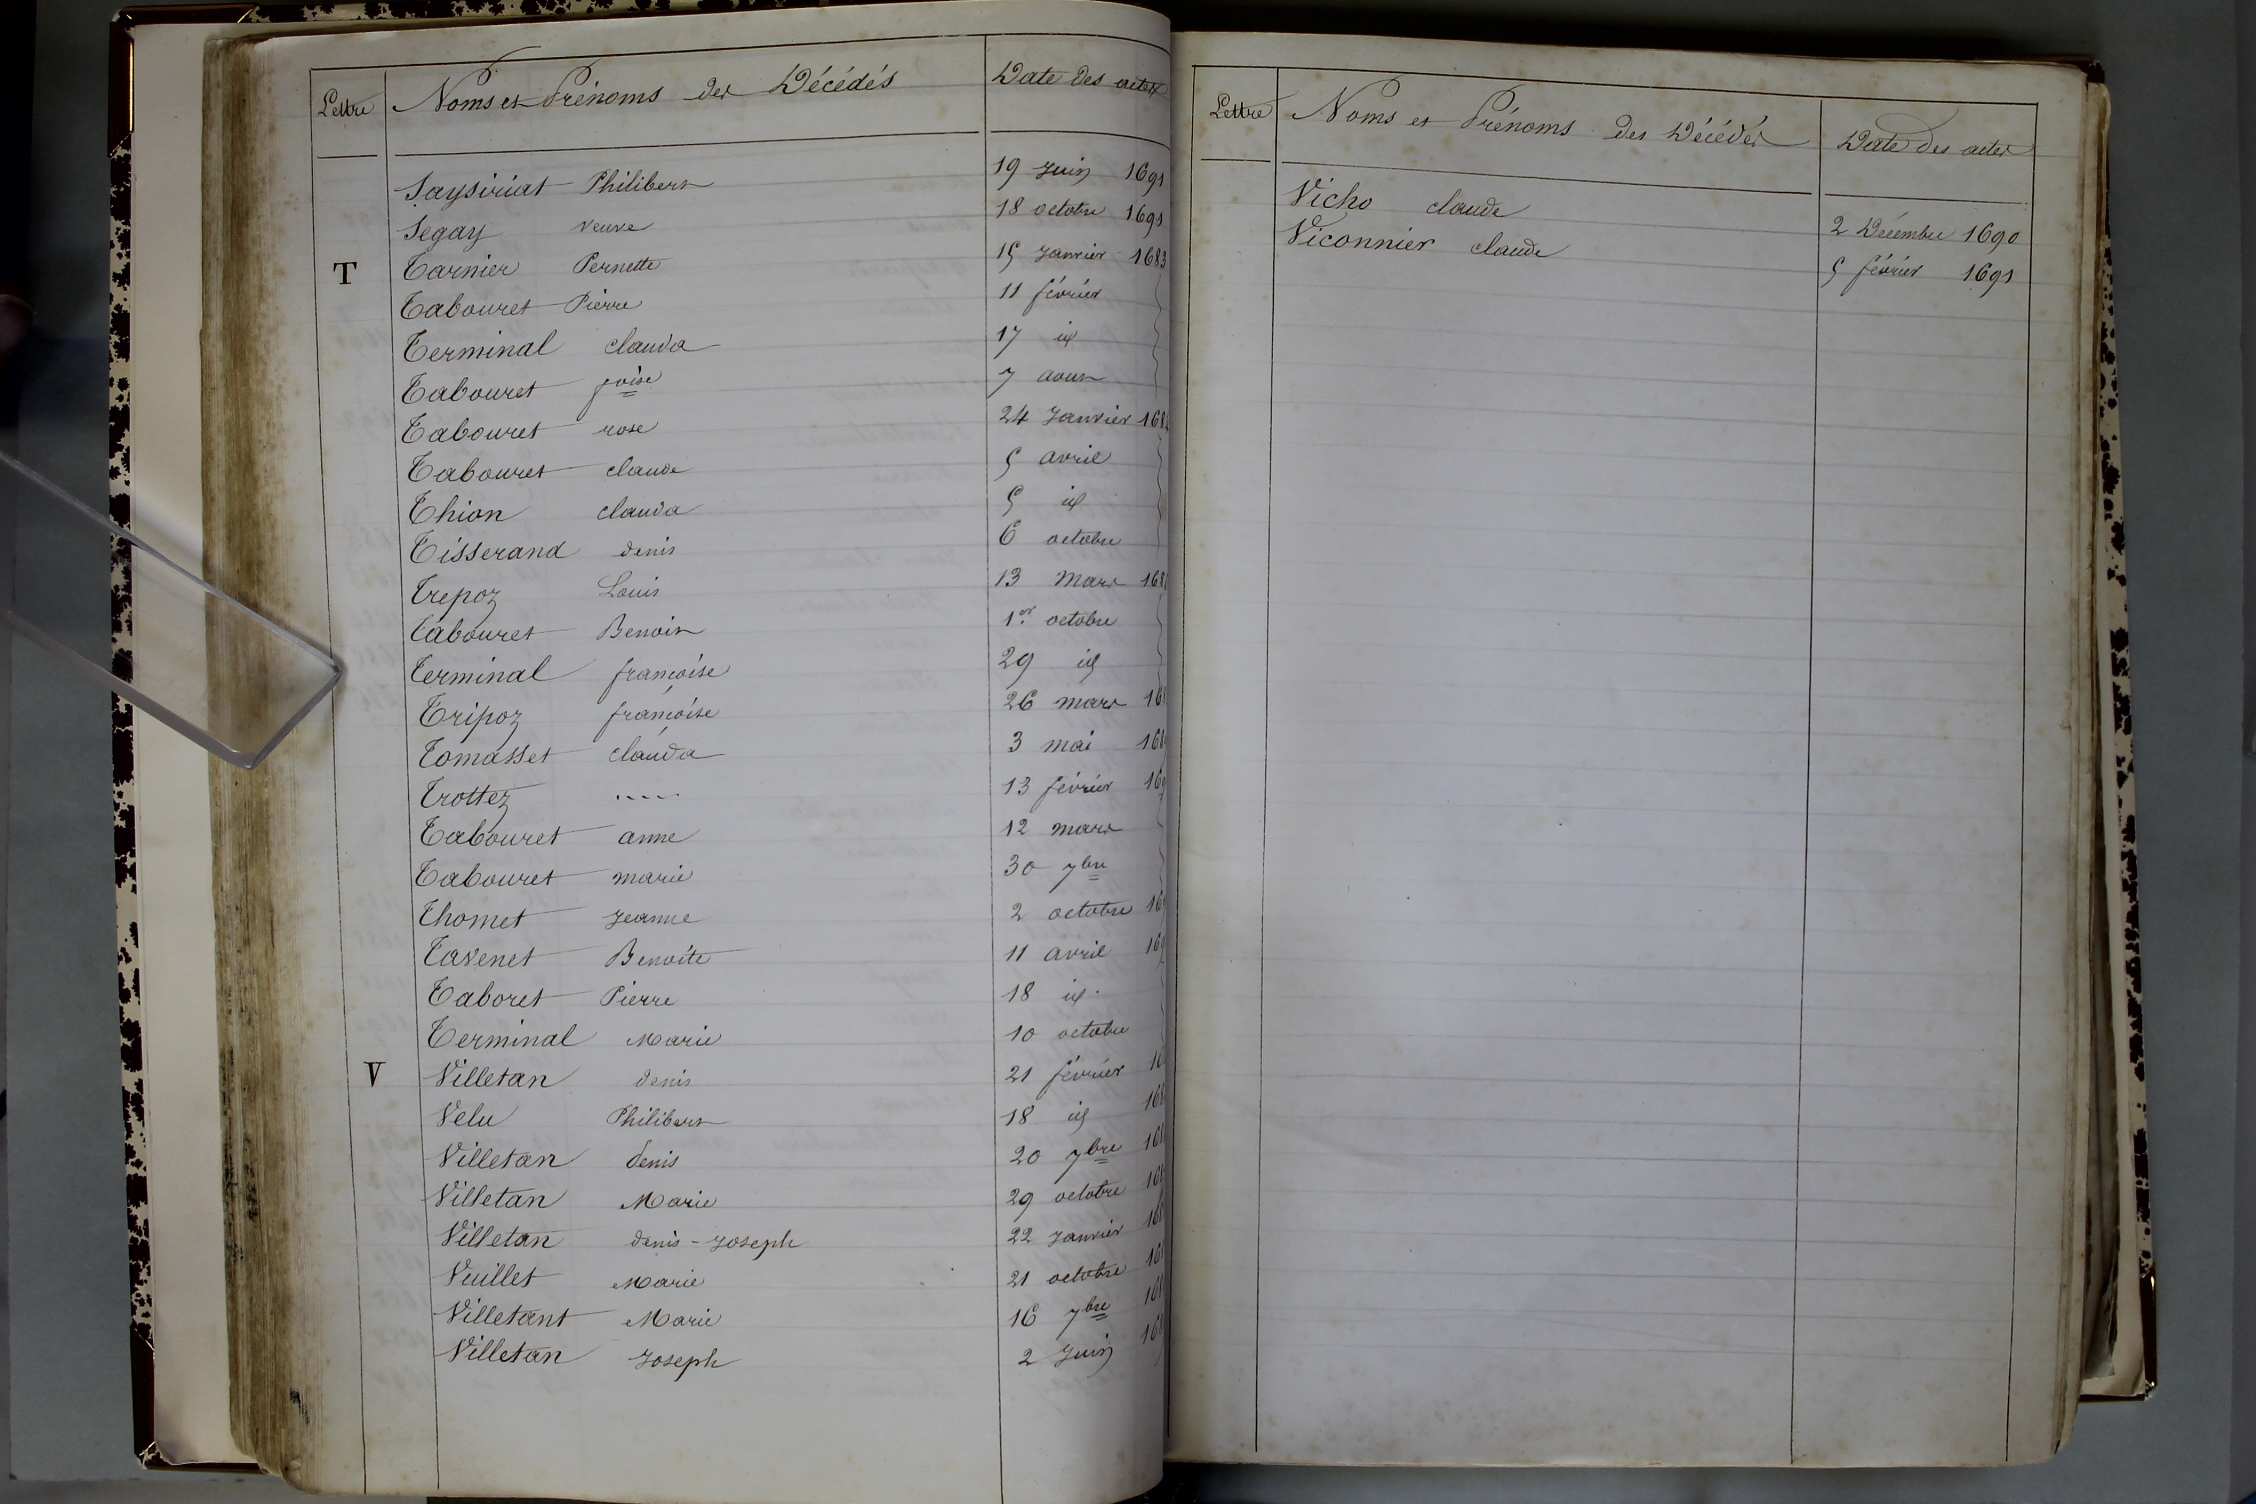 Lettre Noms et Prénoms des Décédés Date des actes
Saysiriat Philibert 19 Juin 1691
Segay veuve 18 octobre 1691
T Tarnier Pernette 15 Janvier 1683
Tabouret Pierre 11 février
Terminal clauda 17 id
Tabouret foise 7 aout
Tabouret rose 24 Janvier
Tabouret claude 5 avril
Thion clauda 5 id
Tisserand denis 6 octobre
Trepoz Louis 13 Mars
Tabouret Benoit 1er octobre
Terminal françoise 29 id
Tripoz françoise 26 mars
Tomasset clauda 3 mai
Trottez ..... 13 février
Tabouret anne 12 mars
Tabouret marie 30 7bre
Thomet Jeanne 2 octobre
Tavenet Benoite 11 avril
Taboret Pierre 18 id.
Terminal Marie 10 octobre
V Villetan denis 21 février
Velu Philibert 18 id
Villetan denis 20 7bre
Villetan Marie 29 octobre
Villetan denis-Joseph 22 Janvier
Vuillet Marie 21 octobre
Villetant Marie 16 7bre
Villetan Joseph 2 Juin
Lettre Noms et Prénoms des Décédés Date des actes
Vicho claude 2 Décembre 1690
Viconnier claude 5 février 1691